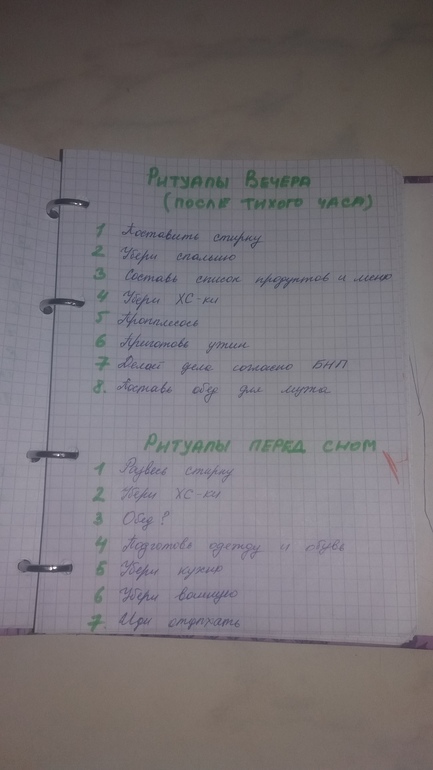 Ритуалы Вечера
(после тихого часа)
1 Поставить стирку
2 Убери спальню
3 Составь список продуктов и меню
4 Убери ХС-ки
5 Пропылесось
6 Приготовь ужин
7 Делай дела согласно БНП
8. Поставь обед для мужа
Ритуалы перед сном
1 Развесь стирку
2 Убери ХС-ки
3 Обед?
4 Подготовь одежду и обувь
5 Убери кухню
6 Убери ванную
7. Иди отдыхать